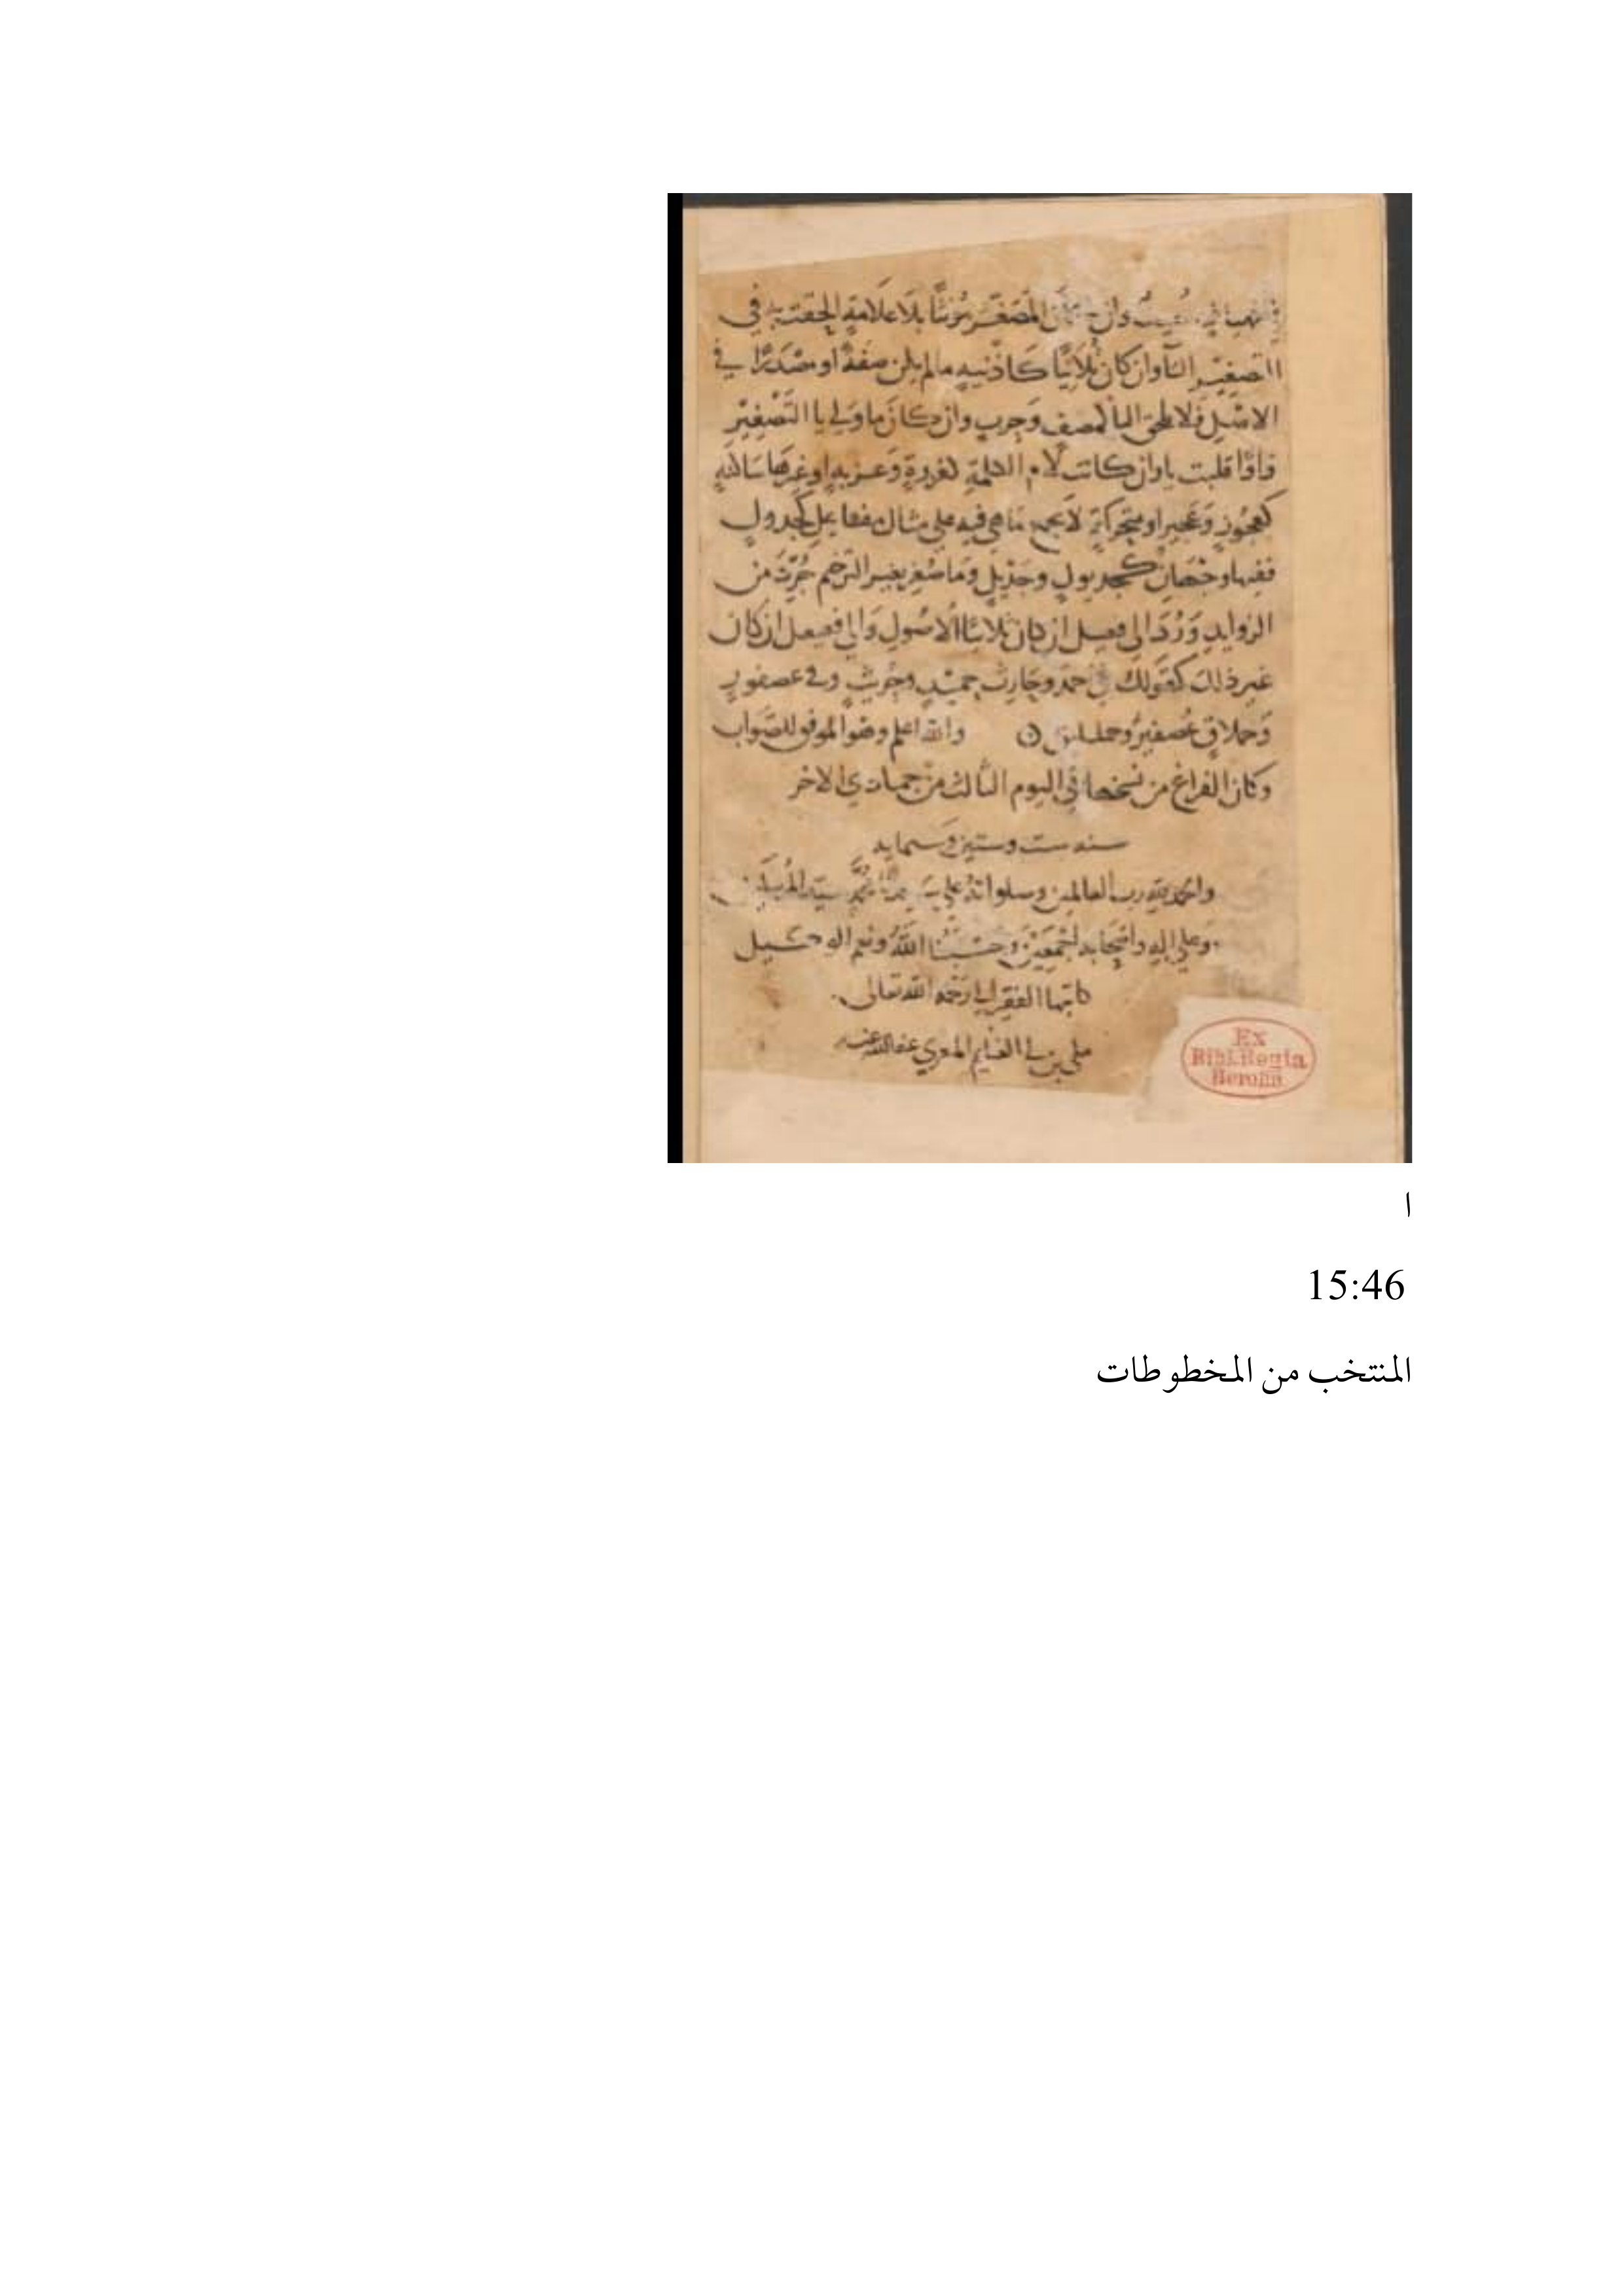 وان كان المصغر مؤنثا بلا علامة الحقت به في
التصغير التا وان كان ثلاثيا كاذنيه مالم يكن صفة او مصدرا في
الاصل فلا تلحق التا كنصف وحرب وان كان ما ولي يا التصغير
واوا قلبت يا وان كانت لام الكلمة كغروة او غيرها ساكنة
كعجوز وعجيز او متحركة لا يجمع ما هي فيه على مثال مفاعل كجدول
ففيها وجهان كجديول وجديل وما صغر بغير الترخم جرد من
الزوايد ورد الى فعيل ان كان ثلاثيا الاصول والى فعيعل ان كان
غير ذلك كقولك في احمد وحارث حميد وحريث وفي عصفور
وحملاق عصيفير وحمليق والله اعلم وهو الموفق للصواب
وكان الفراغ من نسخها في اليوم الثالث من جمادي الاخر
سنه ست وستين وسبمايه
والحمد لله رب العالمين وصلواته على سيدنا محمد سيد المرسلين
وعلى اله واصحابه اجمعين وحسبنا الله ونعم الوكيل
كاتبها الفقير الى رحمه الله تعالى
علي بن ابي الغنايم المعري عفا الله عنه
Ex
Bibl. Regia
Berolin.
ا
15:46
المنتخب من المخطوطات